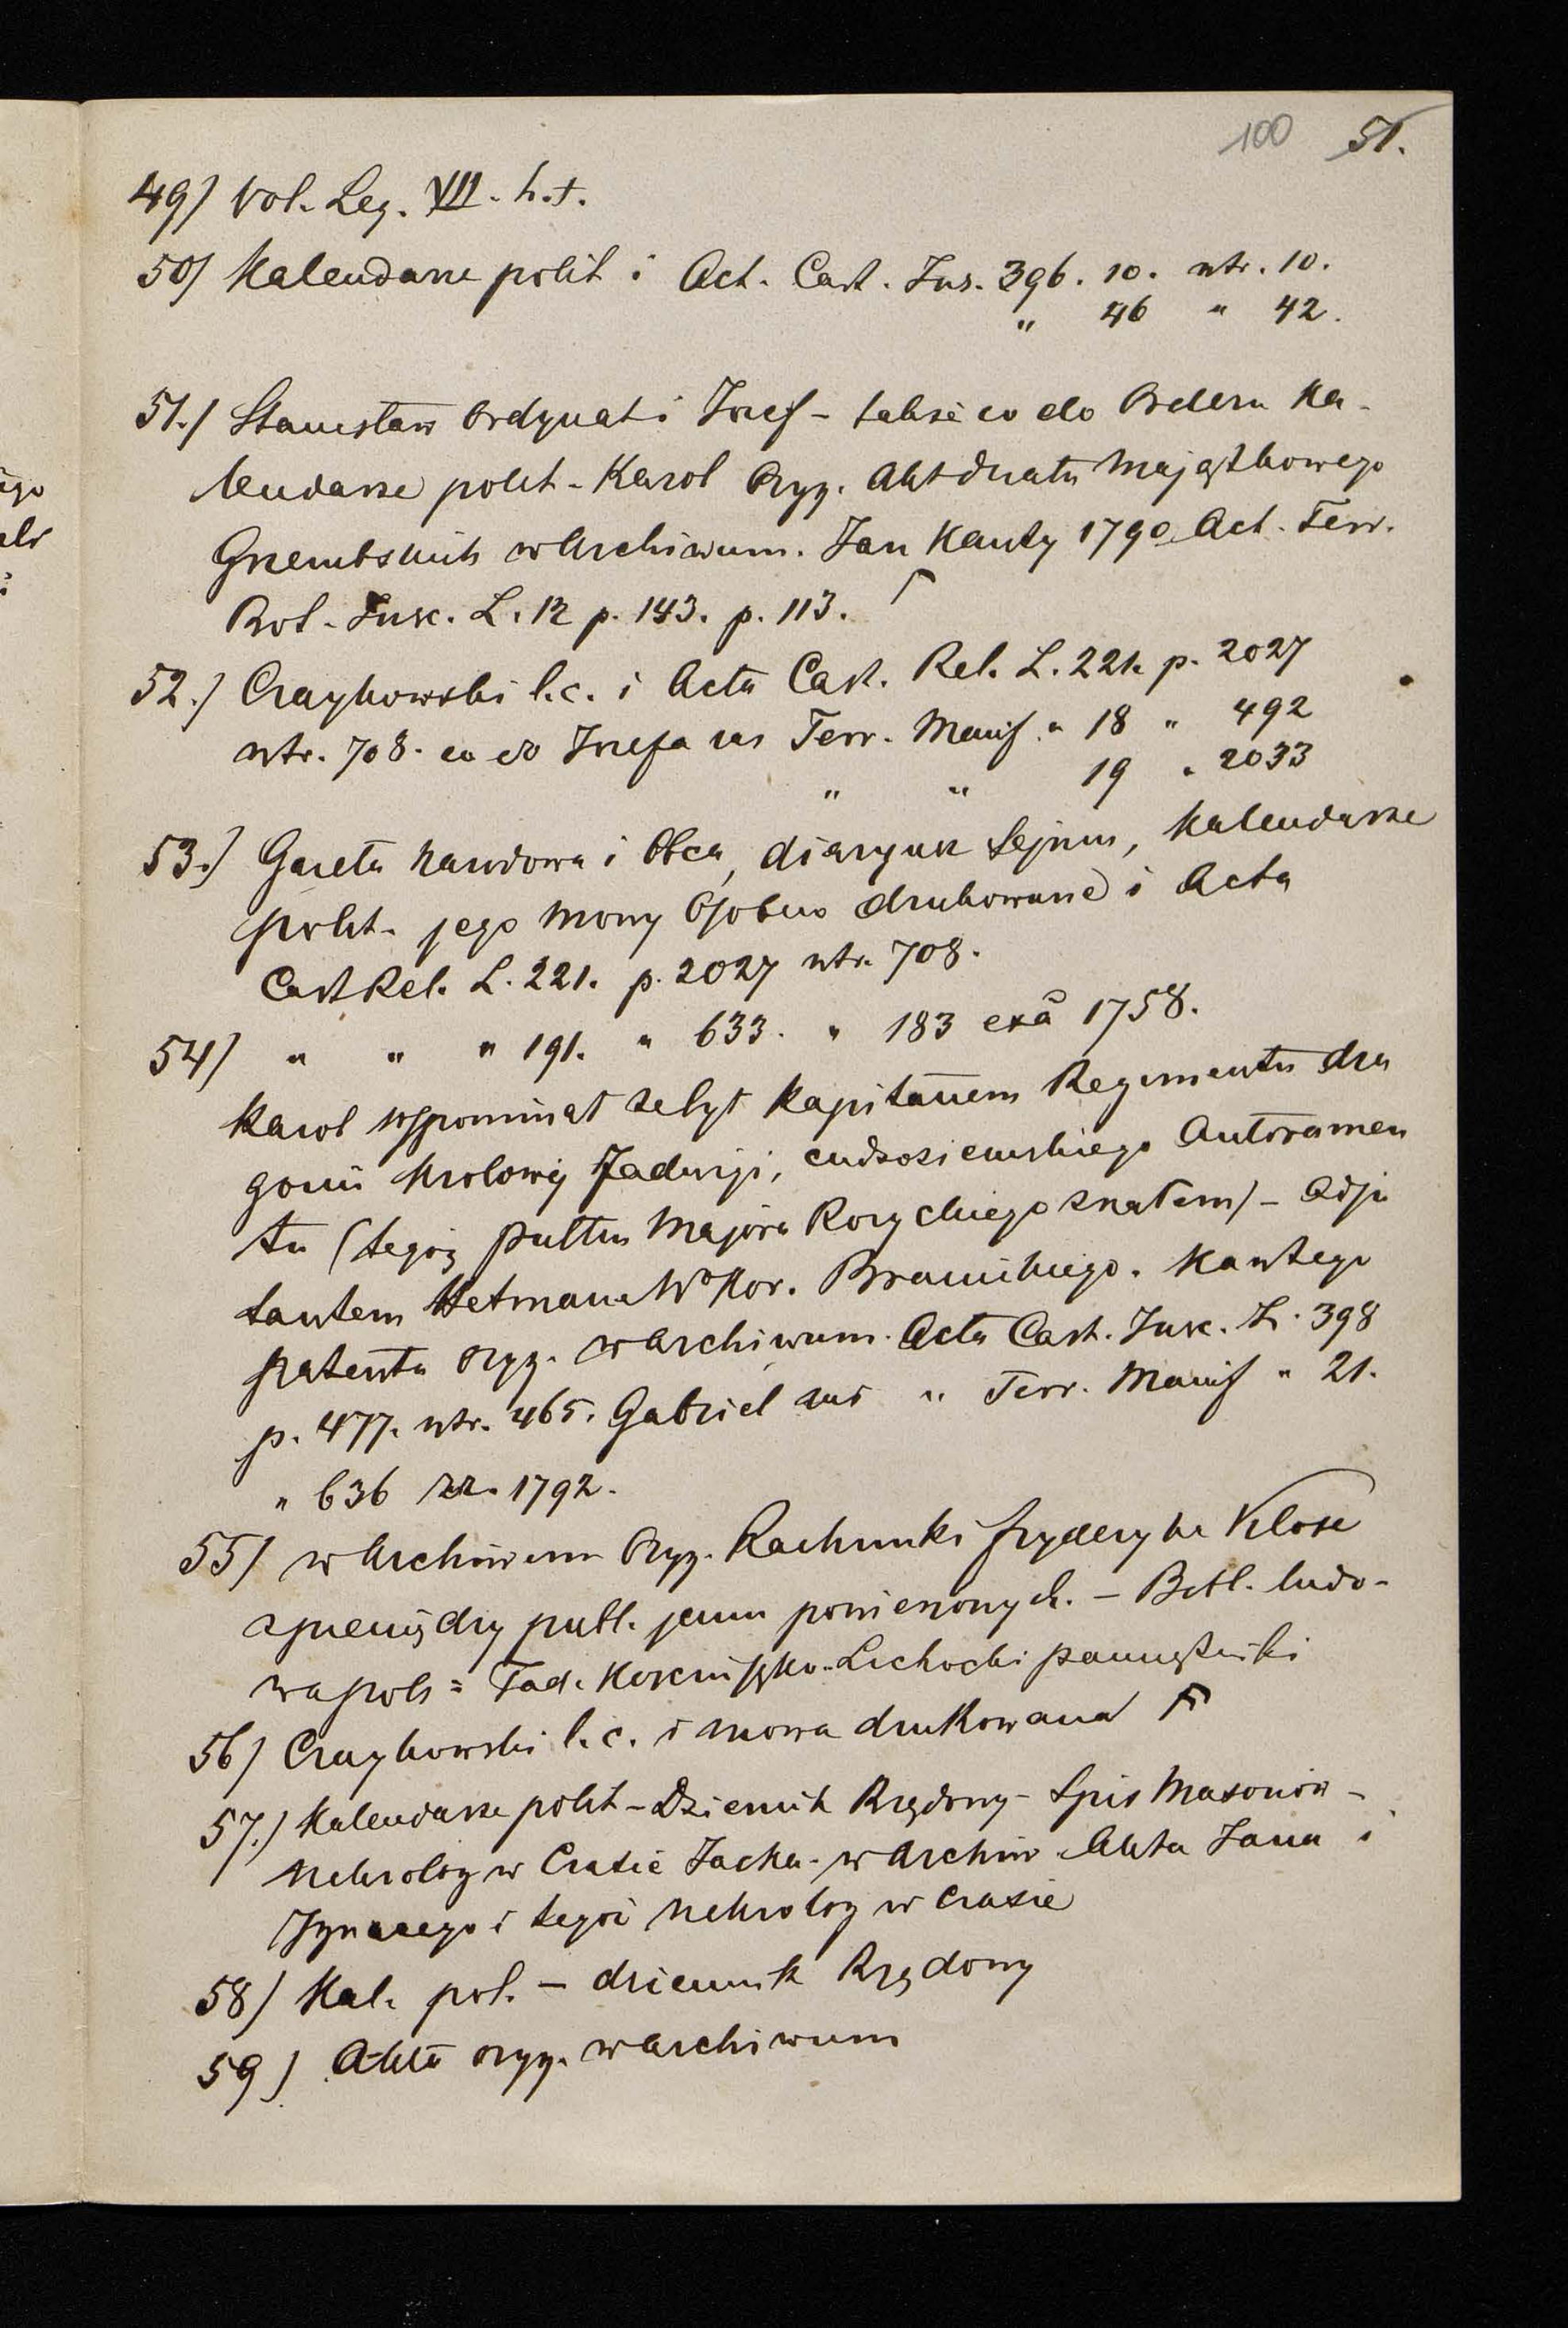 100 51.
49) Vol. Leg. VII. h.t.
50) Kalendarze polit i Act. Cast. Ins. 396. 10. ntr. 10.
" 46 " 42.
51.) Stanisław Ordynat i Józef - także co do Orderu Ka-
lendarze polit - Karol Oryg. Akt działu Majątkowego
Grzembskich w Archiwum. Jan Kanty 1790 Act. Terr.
Rol. Insc. L. 12 p. 143. p. 113.
52.) Czaykowski l.c. i Acta Cast. Rel. L. 221. p. 2027
ntr. 708. co do Józefa zas Terr. Manif. " 18 " 492
" " 19 " 2033
53.) Gazeta narodowa i Obca, diaryusz Sejmu, Kalendarze
polit. jego Mowy Osobno drukowane i Acta
Cast Rel. L. 221. p. 2027 ntr. 708.
54) " " " 191. " 633. " 183 exā 1758.
Karol wspominat że był Kapitanem Regimentu dra
gonii Krolowéj Jadwigi, cudzoziemskiego Autoramen
tu (tegóż pułku Majora Rozyckiego znałem) - Adju
tantem Hetmana Wo Kor. Branickiego. Kantego
patenta oryg. w Archiwum. Acta Cast. Insc. L. 398
p. 477. ntr. 465. Gabriel zas " Terr. Manif " 21.
" 636 zr. 1792.
55) w Archiwum Oryg. Rachunki fryderyka Klose
z pieniędzy publ. jemu powierzonych. - Bibl. ludo-
wa pols = Tad. Kosciuszko - Lichocki pamiętniki
56) Czaykowski l.c. i mowa drukowana
57.) Kalendarze polit - Dziennik Rządowy - Spis Masonów -
Nekrolog w Czasie Jacka - w Archiw. Akta Jana i
Ignacego i tegoż Nekrolog w Czasie
58) Kal. pol. - dziennik Rządowy
59) Akta oryg. w Archiwum